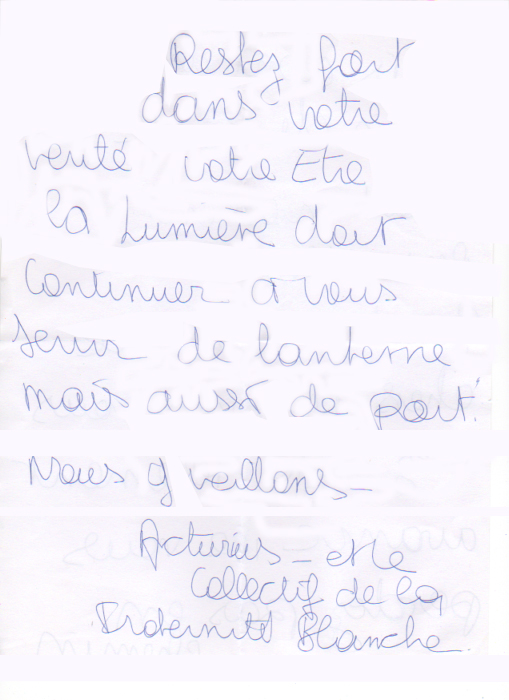 Restez fort
dans votre
vérité votre Etre
la Lumière doit
Continuer à vous
servir de lanterne
mais aussi de port.
Nous y veillons_
Acturius _ et le
Collectif de la
Fraternité Blanche.